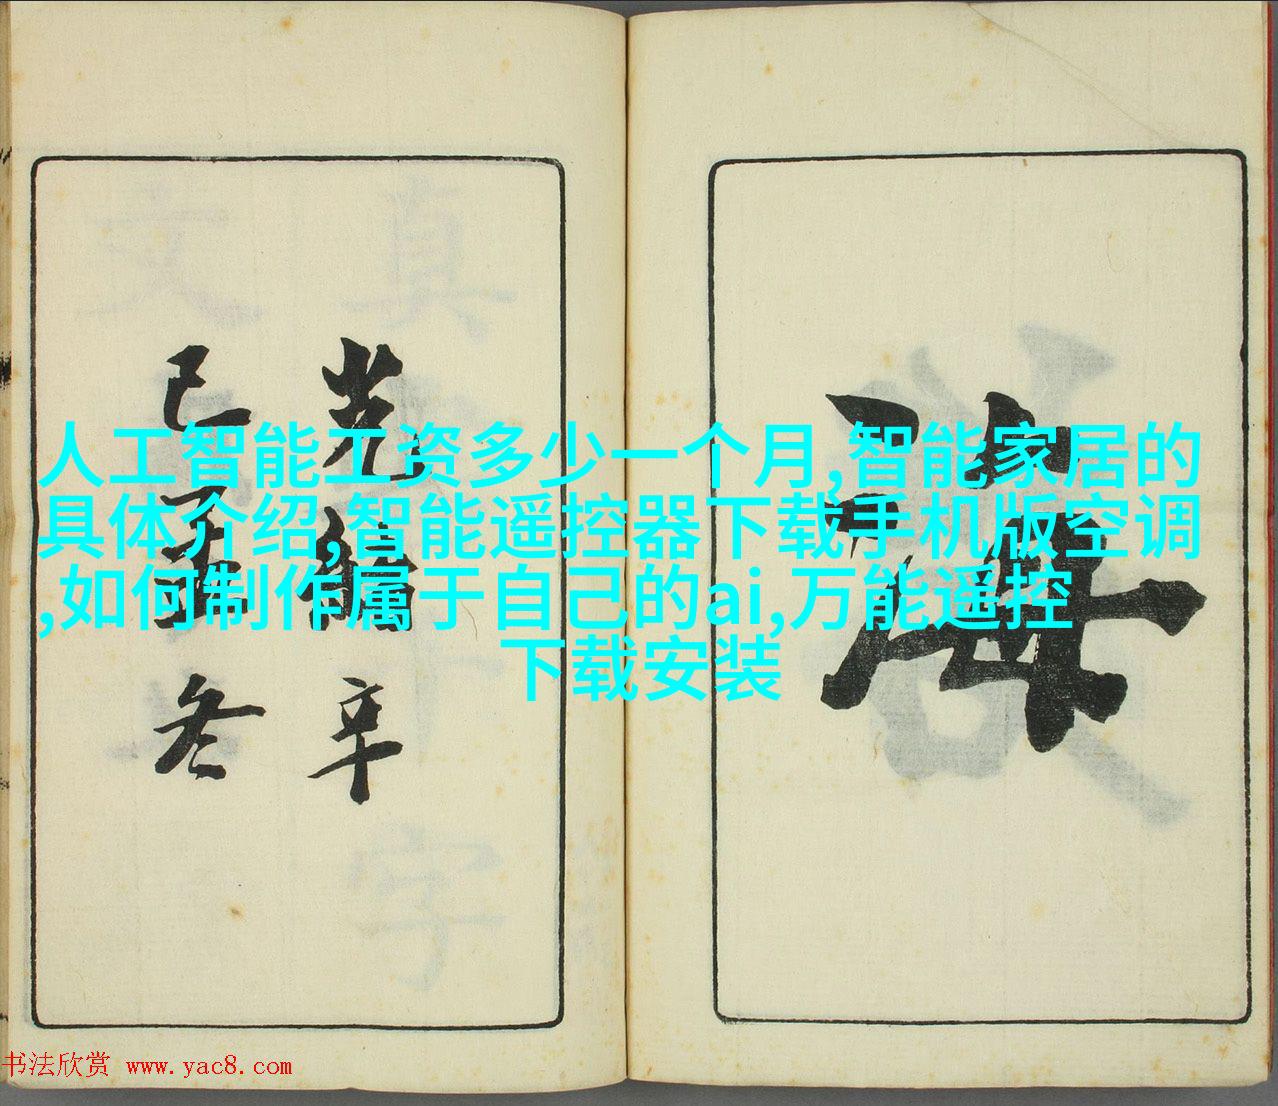 海
光緒
己 冬
人工智能工资多少一个月,智能家居的
具体介绍,智能遥控器下载手机版空调
,如何制作属于自己的ai,万能遥控
下载安装
书法欣赏 www.yac8.com